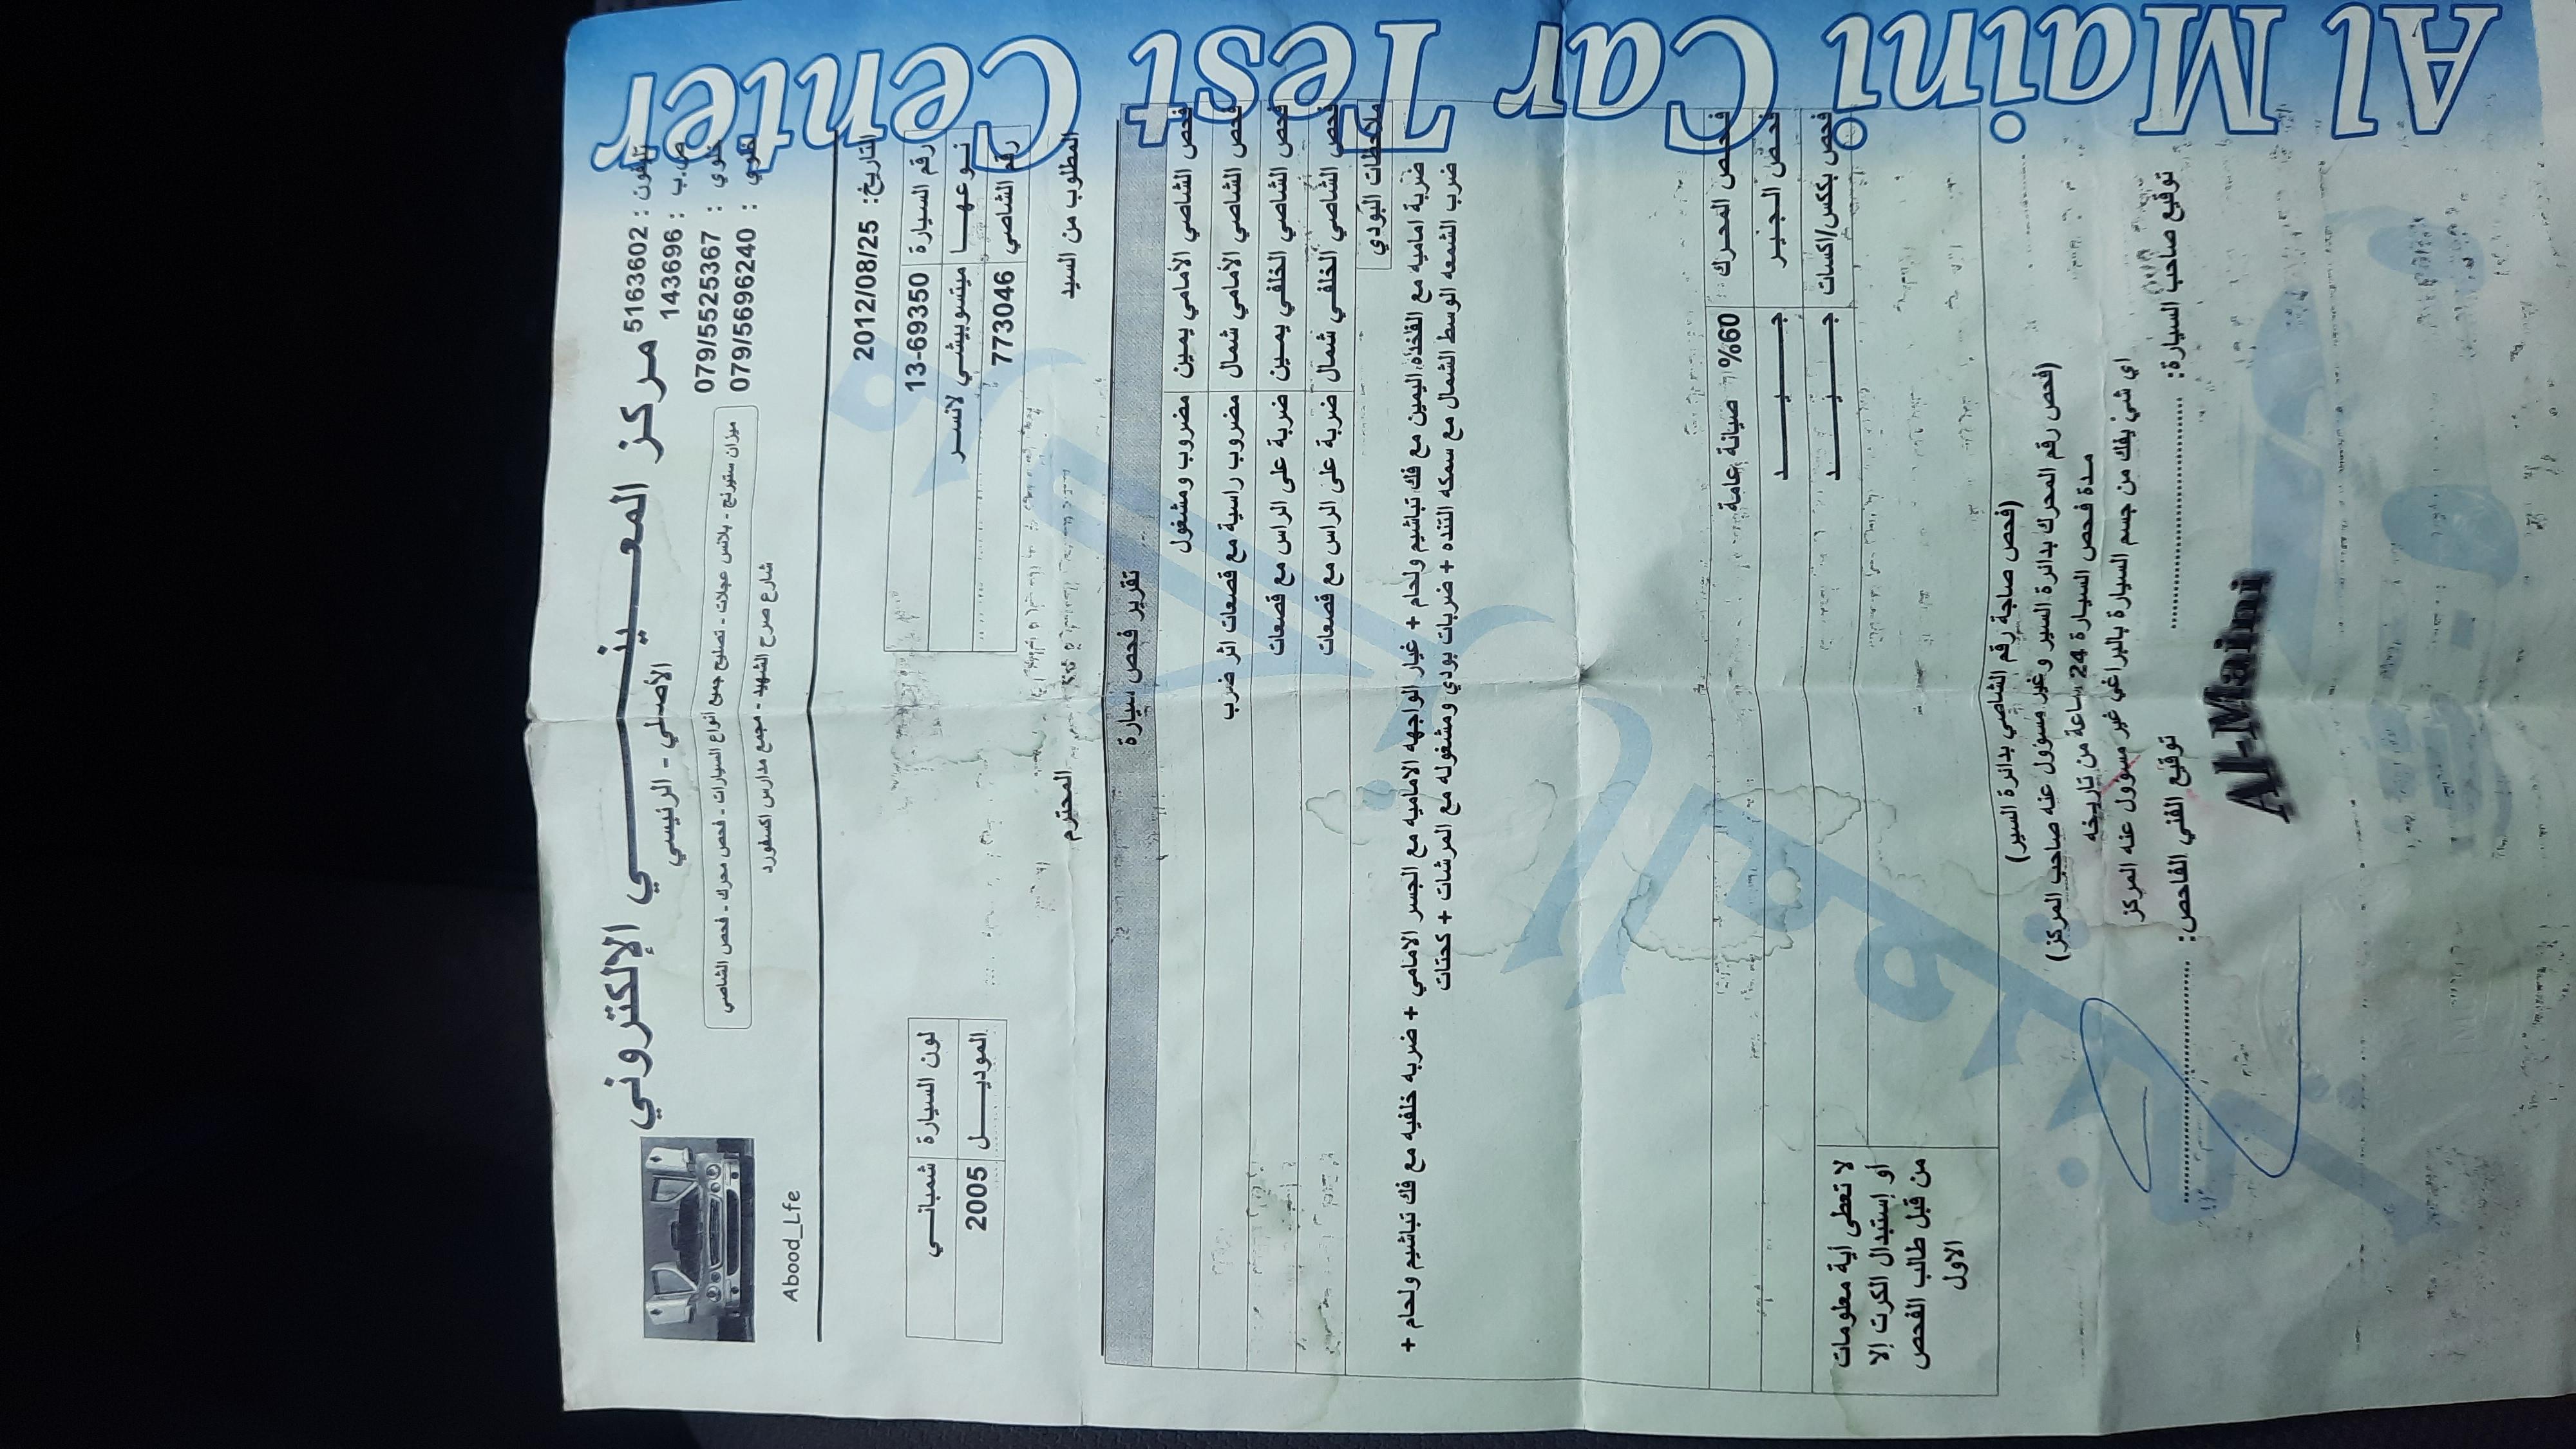 Al Maini Car Test Center
مركز المعيني الإلكتروني
الأصلي - الرئيسي
ميزان ستيرنج - بلانس عجلات - تصليح جميع أنواع السيارات - فحص محرك - فحص الشاصي
شارع صرح الشهيد - مجمع مدارس اكسفورد
تلفون : 5163602
ص.ب : 143696
خلوي : 079/5525367
خلوي : 079/5696240
Abood_Lfe
التاريخ: 2012/08/25
رقم السيارة 13-69350
لون السيارة شمباني
نوعها ميتسوبيشي لانسر
الموديل 2005
رقم الشاصي 773046
المطلوب من السيد المحترم
تقرير فحص سيارة
فحص الشاصي الأمامي يمين مضروب ومشغول
فحص الشاصي الأمامي شمال مضروب راسية مع قصعات اثر ضرب
فحص الشاصي الخلفي يمين ضربة على الراس مع قصعات
فحص الشاصي الخلفي شمال ضربة على الراس مع قصعات
ملاحظات البودي
ضربة امامية مع الفخذه اليمين مع فك تباشيم ولحام + غيار الواجهه الاماميه مع الجسر الامامي + ضربه خلفيه مع فك تباشيم ولحام +
ضرب الشمعه الوسط الشمال مع سمكه التنده + ضربات بودي ومشغوله مع المرشات + كحتات
فحص المحرك : 60% صيانة عامة
فحص الجير جيد
فحص بككس/اكسات جيد
لا تعطى أية معلومات
أو إستبدال الكرت إلا
من قبل طالب الفحص
الاول
(فحص صاجة رقم الشاصي بدائرة السير)
(فحص رقم المحرك بدائرة السير وغير مسؤول عنه صاحب المركز)
مدة فحص السيارة 24 ساعة من تاريخه
اي شئ يفك من جسم السيارة بالبراغي غير مسؤول عنه المركز
توقيع صاحب السيارة:
توقيع الفني الفاحص:
Al-Maini